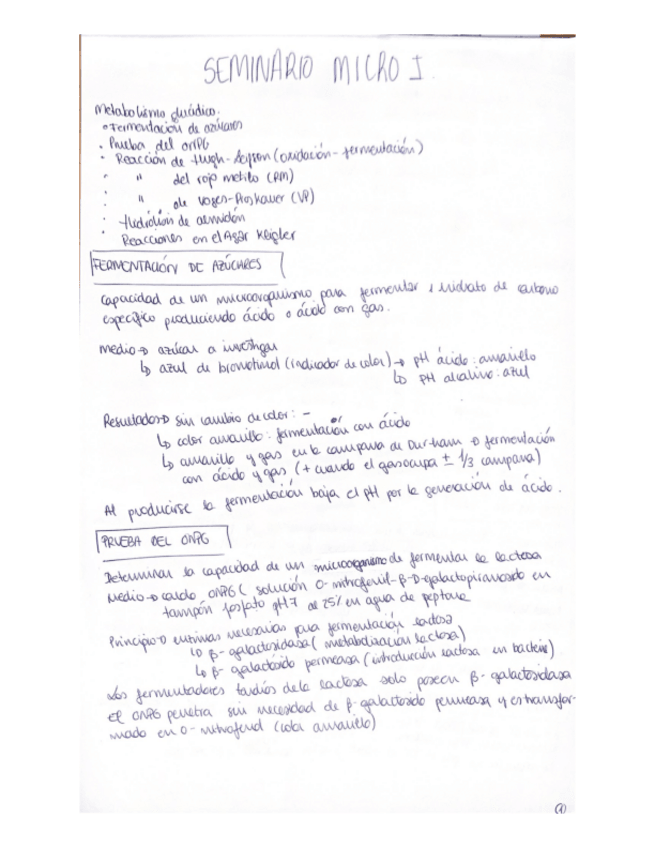 SEMINARIO MICRO I.
Metabolismo glucídico.
• Fermentación de azúcares
• Prueba del ONPG
• Reacción de Hugh-Leifson (oxidación-fermentación)
• " del rojo metilo (RM)
• " de Voges-Proskauer (VP)
• Hidrólisis de almidón
• Reacciones en el Agar Kligler
FERMENTACIÓN DE AZÚCARES
Capacidad de un microorganismo para fermentar 1 hidrato de carbono
específico produciendo ácido o ácido con gas.
Medio → azúcar a investigar
↳ azul de bromotimol (indicador de color) → pH ácido: amarillo
↳ pH alcalino: azul
Resultados → sin cambio de color: -
↳ color amarillo: fermentación con ácido
↳ amarillo y gas en la campana de Durham → fermentación
con ácido y gas (+ cuando el gas ocupa ± 1/3 campana)
Al producirse la fermentación baja el pH por la generación de ácido.
PRUEBA DEL ONPG
Determinar la capacidad de un microorganismo de fermentar la lactosa
Medio → caldo ONPG ( solución O-nitrofenil-β-D-galactopiranosido en
tampón fosfato pH7 al 25% en agua de peptona
Principio → enzimas necesarias para fermentación lactosa
↳ β-galactosidasa (metabolización lactosa)
↳ β-galactósido permeasa (introducción lactosa en bacteria)
Los fermentadores tardíos de la lactosa solo poseen β-galactosidasa
el ONPG penetra sin necesidad de β-galactosido permeasa y es transfor-
mado en O-nitrofenol (color amarillo)
1